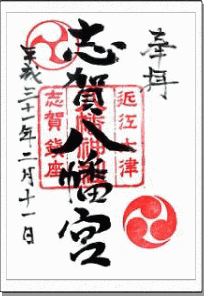 奉拝
近江大津
志賀八幡宮
志賀鎮座
平成三十一年二月十一日